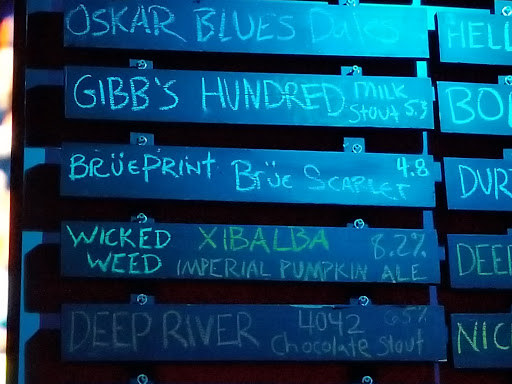 OSKAR BLUES Dales
HELL
GIBB'S HUNDRED MILK
STOUT 5.3
BRÜEPRINT BRÜE SCARLET 4.8
DUR
WICKED XIBALBA 8.2%
WEED IMPERIAL PUMPKIN ALE
DEEP
DEEP RIVER 4042 6.5%
Chocolate Stout
NIC